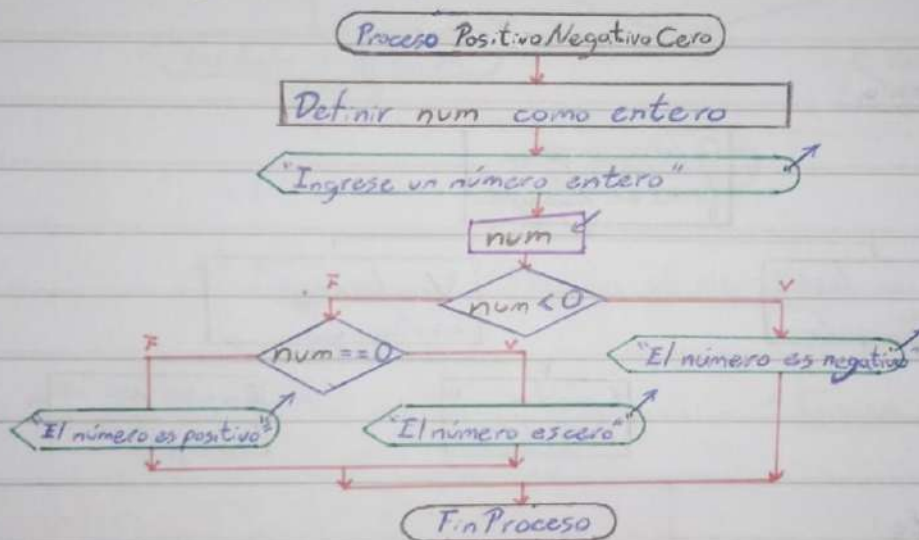 Proceso PositivoNegativoCero
Definir num como entero
"Ingrese un número entero"
num
F
num < 0
V
F
num == 0
V
"El número es negativo"
"El número es positivo"
"El número es cero"
Fin Proceso